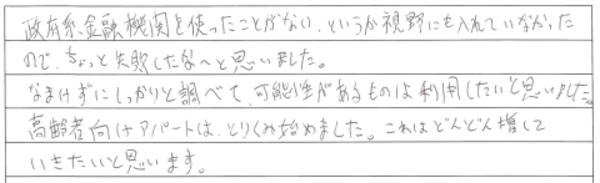 政府系金融機関を使ったことがない、というか視野にも入れていなかった
ので、ちょっと失敗したな〜と思いました。
なまけずにしっかりと調べて、可能性があるものは利用したいと思いました。
高齢者向けアパートは、とりくみ始めました。これはどんどん増して
いきたいと思います。